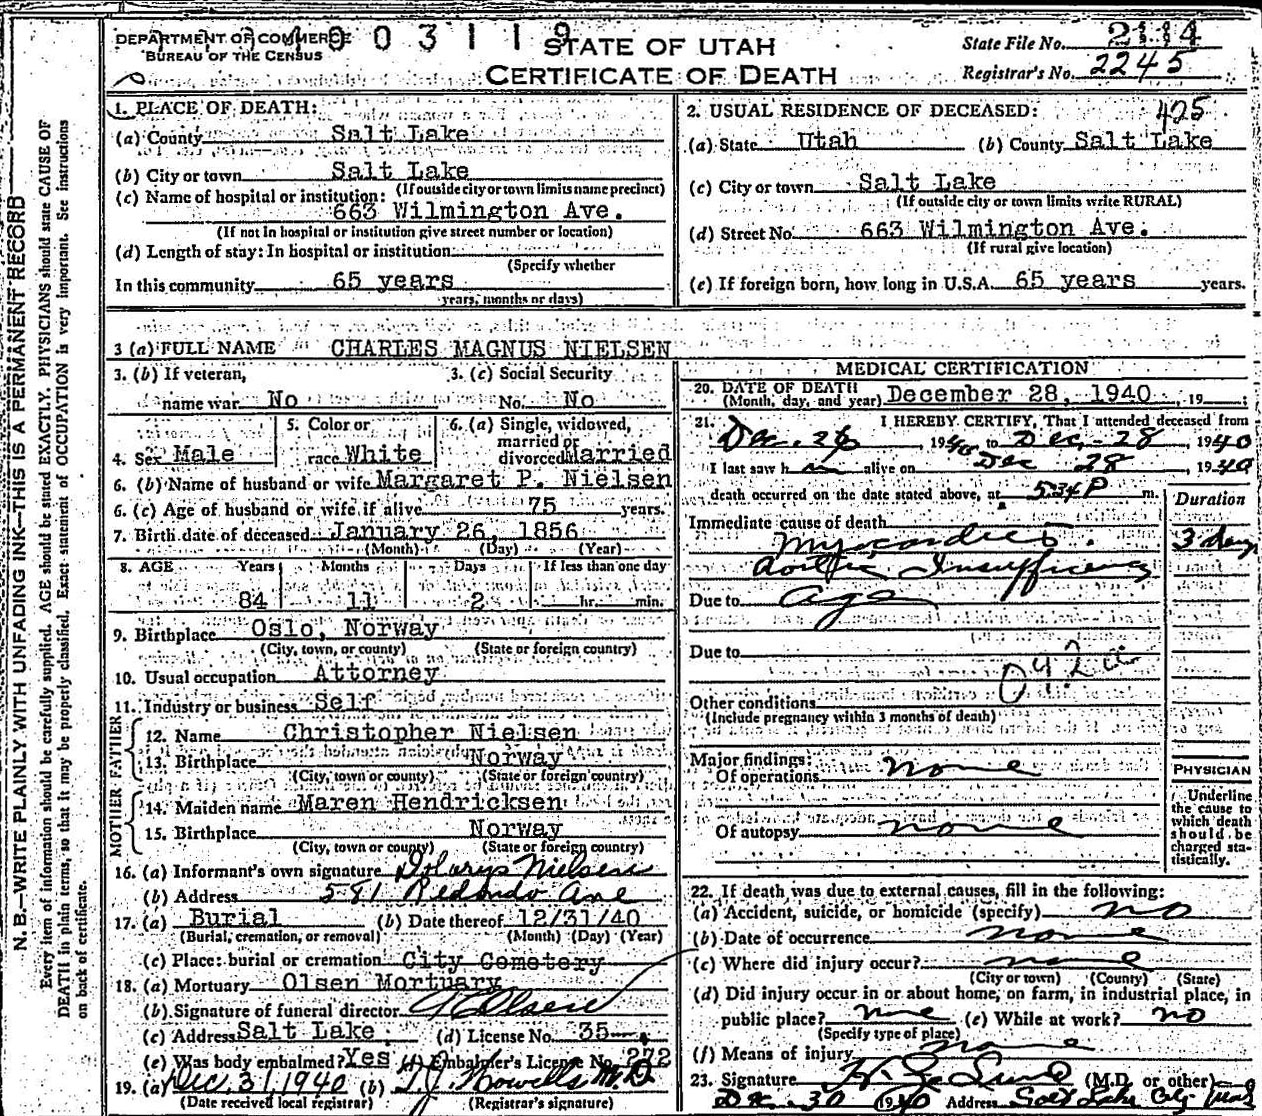 DEPARTMENT OF COMMERCE
BUREAU OF THE CENSUS
4003119
STATE OF UTAH
CERTIFICATE OF DEATH
State File No. 2114
Registrar's No. 2245
N. B.—WRITE PLAINLY WITH UNFADING INK—THIS IS A PERMANENT RECORD
Every item of information should be carefully supplied. AGE should be stated EXACTLY. PHYSICIANS should state CAUSE OF
DEATH in plain terms, so that it may be properly classified. Exact statement of OCCUPATION is very important. See instructions
on back of certificate.
1. PLACE OF DEATH:
(a) County Salt Lake
(b) City or town Salt Lake
(If outside city or town limits name precinct)
(c) Name of hospital or institution:
663 Wilmington Ave.
(If not in hospital or institution give street number or location)
(d) Length of stay: In hospital or institution
(Specify whether
In this community 65 years
years, months or days)
2. USUAL RESIDENCE OF DECEASED: 425
(a) State Utah (b) County Salt Lake
(c) City or town Salt Lake
(If outside city or town limits write RURAL)
(d) Street No 663 Wilmington Ave.
(If rural give location)
(e) If foreign born, how long in U.S.A. 65 years years.
3 (a) FULL NAME CHARLES MAGNUS NIELSEN
3. (b) If veteran,
name war No
3. (c) Social Security
No. No
4. Sex Male
5. Color or
race White
6. (a) Single, widowed,
married or
divorced Married
6. (b) Name of husband or wife Margaret P. Nielsen
6. (c) Age of husband or wife if alive 75 years.
7. Birth date of deceased January 26, 1856
(Month) (Day) (Year)
8. AGE Years Months Days If less than one day
84 11 2 hr. min.
9. Birthplace Oslo, Norway
(City, town, or county) (State or foreign country)
10. Usual occupation Attorney
11. Industry or business Self
FATHER
12. Name Christopher Nielsen
13. Birthplace Norway
(City, town or county) (State or foreign country)
MOTHER
14. Maiden name Maren Hendricksen
15. Birthplace Norway
(City, town or county) (State or foreign country)
16. (a) Informant's own signature Nielsen
(b) Address 581 Redondo Ave
17. (a) Burial (b) Date thereof 12/31/40
(Burial, cremation, or removal) (Month) (Day) (Year)
(c) Place: burial or cremation City Cemetery
18. (a) Mortuary Olsen Mortuary
(b) Signature of funeral director Olsen
(c) Address Salt Lake (d) License No. 35
(e) Was body embalmed? Yes (f) Embalmer's License No. 272
19. (a) Dec. 31, 1940 (b) T.J. Howells M.D.
(Date received local registrar) (Registrar's signature)
MEDICAL CERTIFICATION
20. DATE OF DEATH
(Month, day, and year) December 28, 1940, 19
21. I HEREBY CERTIFY, That I attended deceased from
Dec. 26 1940 to Dec. 28, 1940
I last saw him alive on Dec 28, 1940
death occurred on the date stated above, at 5:34 P m.
Duration
Immediate cause of death
Myocardites. 3 days
Aortic Insufficiency
Due to Age
Due to
092a
Other conditions
(Include pregnancy within 3 months of death)
Major findings:
Of operations none
Of autopsy none
PHYSICIAN
Underline
the cause to
which death
should be
charged sta-
tistically.
22. If death was due to external causes, fill in the following:
(a) Accident, suicide, or homicide (specify) no
(b) Date of occurrence none
(c) Where did injury occur? none
(City or town) (County) (State)
(d) Did injury occur in or about home, on farm, in industrial place, in
public place? none (e) While at work? no
(Specify type of place)
(f) Means of injury none
23. Signature (M.D. or other)
Dec. 30 1940 Address Salt Lake City Utah